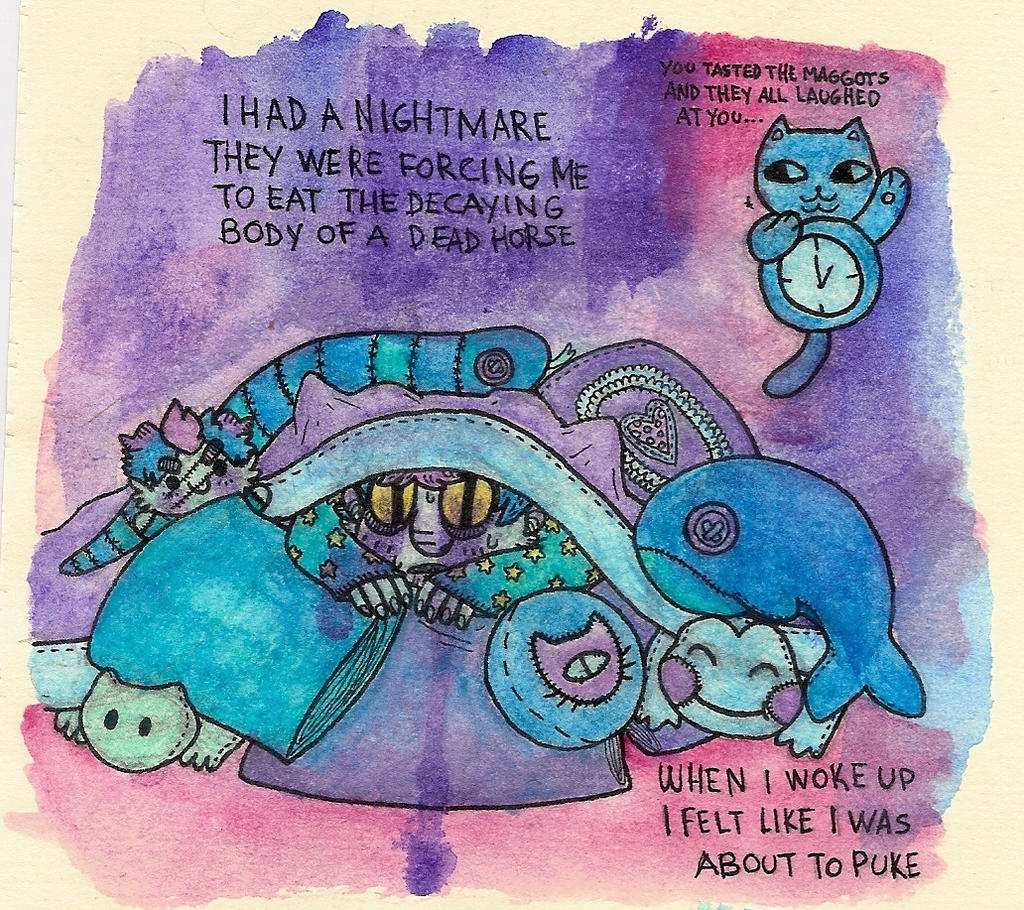 I HAD A NIGHTMARE
THEY WERE FORCING ME
TO EAT THE DECAYING
BODY OF A DEAD HORSE
YOU TASTED THE MAGGOTS
AND THEY ALL LAUGHED
AT YOU...
WHEN I WOKE UP
I FELT LIKE I WAS
ABOUT TO PUKE